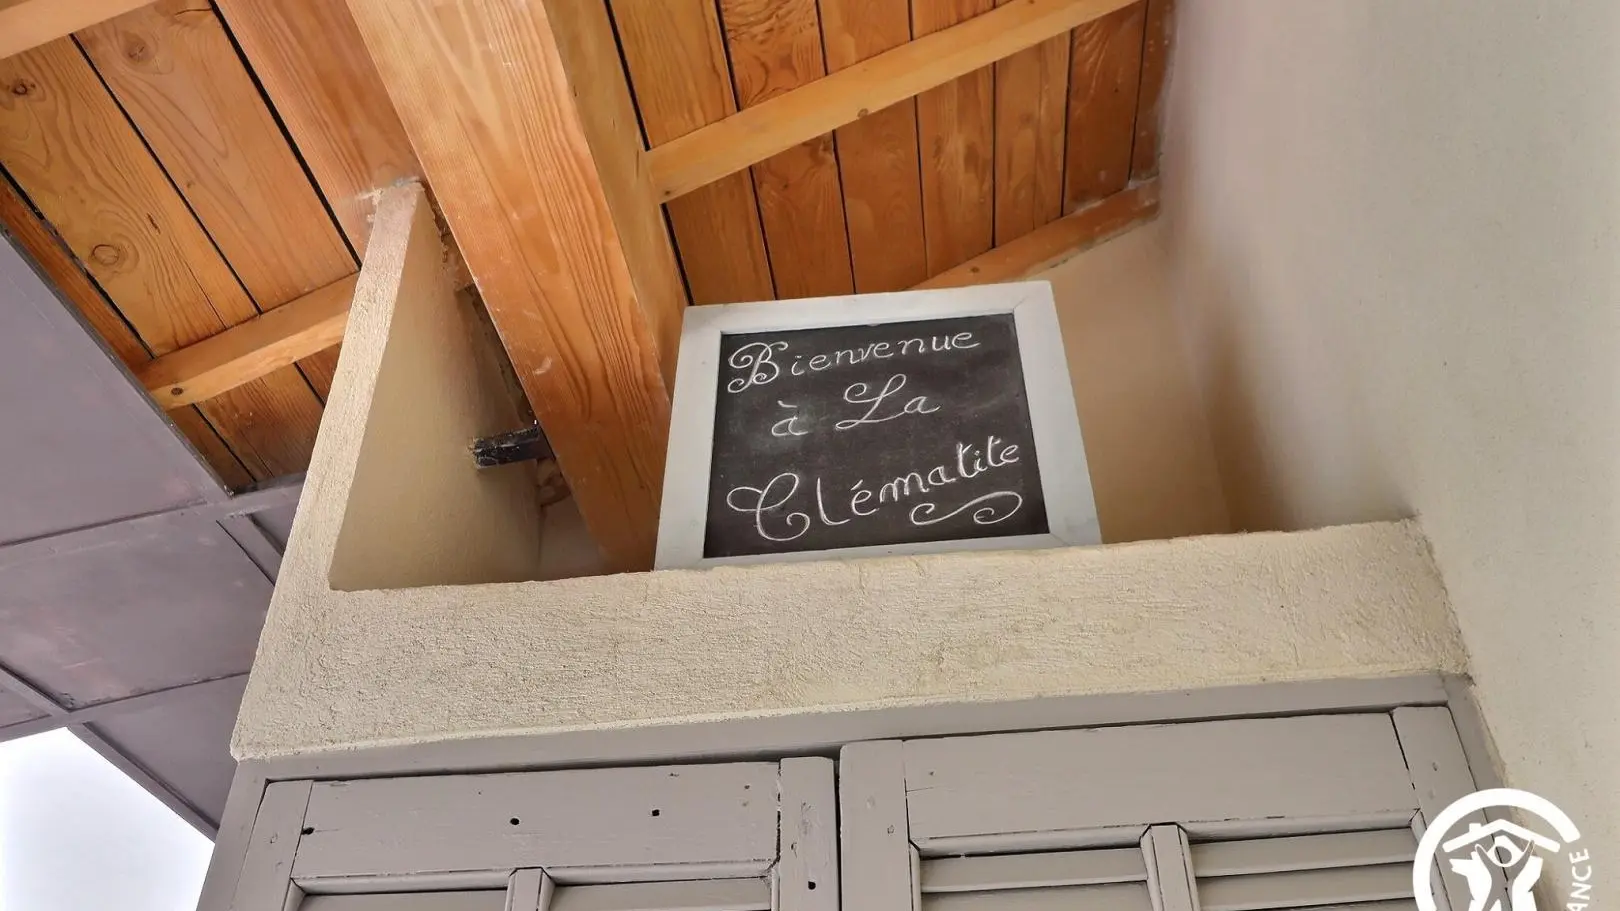 Bienvenue
à La
Clématite
ANCE